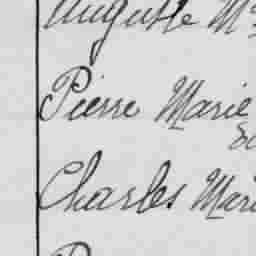 Auguste M
Pierre Marie
Charles Mari